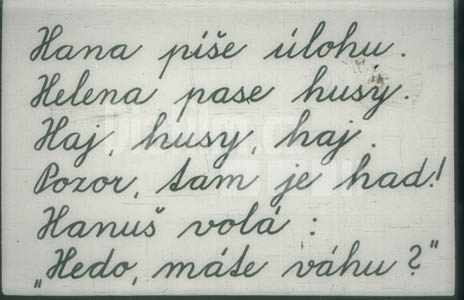 Hana píše úlohu.
Helena pase husy.
Haj, husy, haj.
Pozor, tam je had!
Hanuš volá:
„Hedo, máte váhu?"